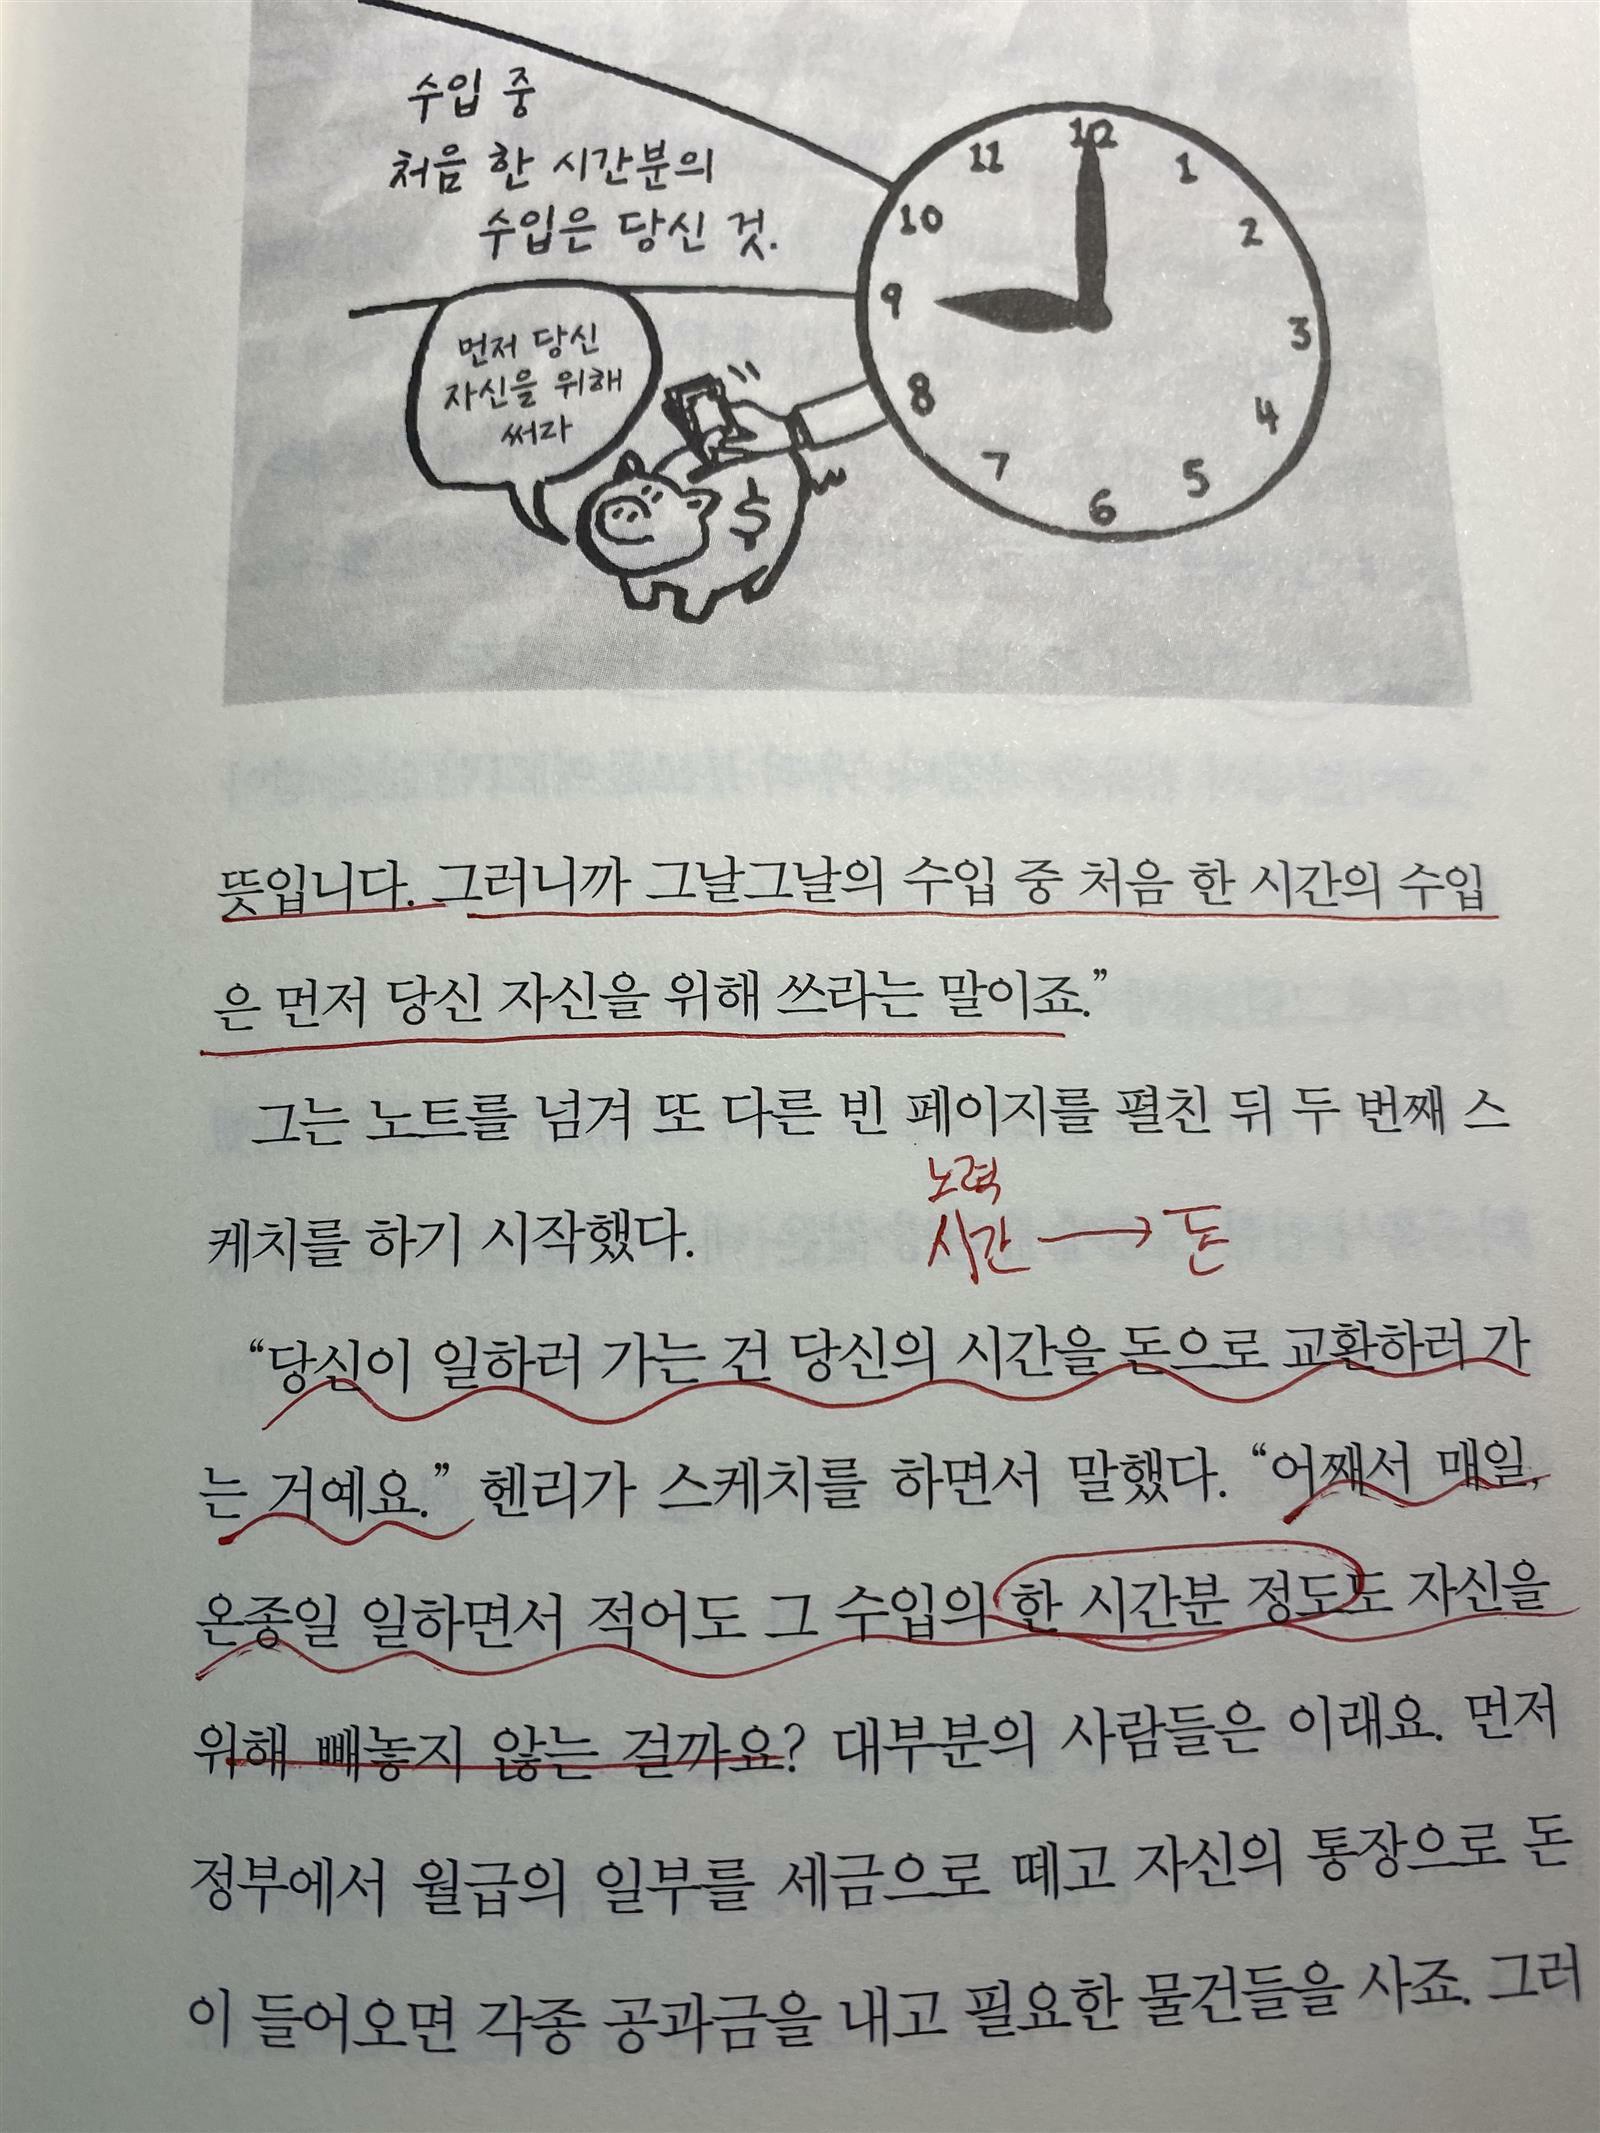 수입 중
처음 한 시간분의
수입은 당신 것.
먼저 당신
자신을 위해
써라
12
1
2
3
4
5
6
7
8
9
10
11
$
뜻입니다. 그러니까 그날그날의 수입 중 처음 한 시간의 수입
은 먼저 당신 자신을 위해 쓰라는 말이죠.”
그는 노트를 넘겨 또 다른 빈 페이지를 펼친 뒤 두 번째 스
노력
케치를 하기 시작했다. 시간 → 돈
“당신이 일하러 가는 건 당신의 시간을 돈으로 교환하러 가
는 거예요.” 헨리가 스케치를 하면서 말했다. “어째서 매일,
온종일 일하면서 적어도 그 수입의 한 시간분 정도도 자신을
위해 빼놓지 않는 걸까요? 대부분의 사람들은 이래요. 먼저
정부에서 월급의 일부를 세금으로 떼고 자신의 통장으로 돈
이 들어오면 각종 공과금을 내고 필요한 물건들을 사죠. 그러